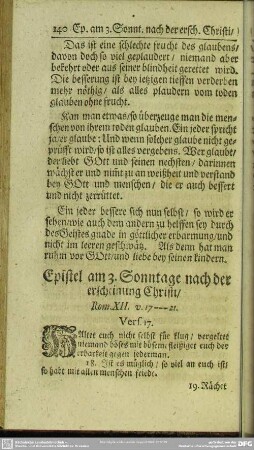 240 Ep. am 3. Sonnt. nach der ersch. Christi/
Das ist eine schlechte frucht des glaubens/
davon doch so viel geplaudert / niemand aber
bekehrt oder aus seiner blindheit gerettet wird.
Die besserung ist bey jetzigen tieffen verderben
mehr nöthig/ als alles plaudern vom toden
glauben ohne frucht.
Kan man etwas/ so überzeuge man die men-
schen von ihrem toden glauben. Ein jeder spricht
ja/er glaube: Und wenn solcher glaube nicht ge-
prüfft wird/ so ist alles vergebens. Wer glaubt/
der liebt GOtt und seinen nechsten/ darinnen
wächst er und nimt zu an weißheit und verstand
bey GOtt und menschen/ die er auch bessert
und nicht zerrüttet.
Ein jeder bessere sich nun selbst/ so wird er
sehen/wie auch dem andern zu helffen sey durch
des Geistes gnade in göttlicher erbarmung/und
nicht im leeren geschwätz. Als denn hat man
ruhm vor GOtt/und liebe bey seinen kindern.
Epistel am 3. Sonntage nach der
erscheinung Christi/
Rom. XII. v. 17--21.
Vers. 17.
HAltet euch nicht selbst für klug/ vergeltet
niemand böses mit bösem; fleißiget euch der
erbarkeit gegen jederman.
18. Ist es müglich/ so viel an euch ist/
so habt mit allen menschen friede.
19. Rächet